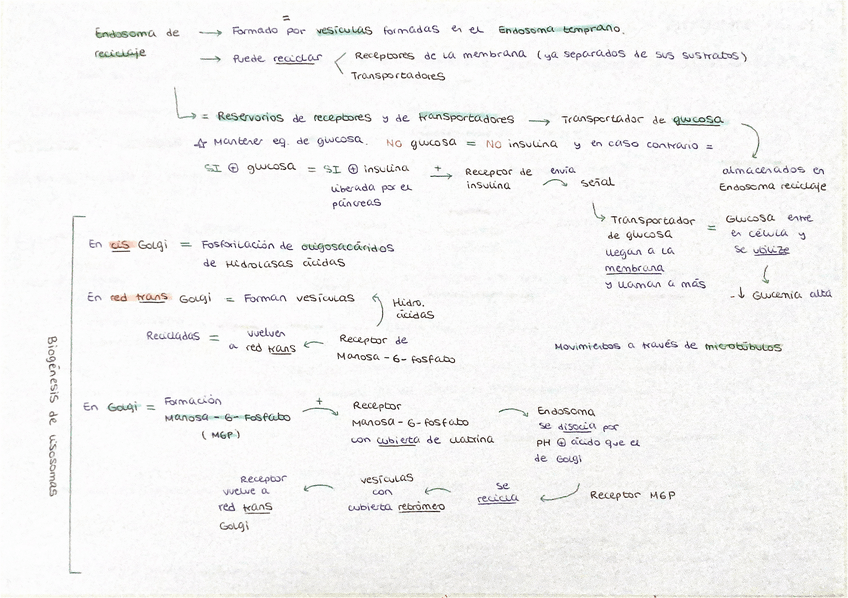 =
Endosoma de → Formado por vesículas formadas en el Endosoma temprano.
reciclaje → Puede reciclar < Receptores de la membrana (ya separados de sus sustratos)
Transportadores
↳ = Reservorios de receptores y de transportadores → Transportador de glucosa
☆ Mantener eq. de glucosa. NO glucosa = NO insulina y en caso contrario =
SI ⊕ glucosa = SI ⊕ insulina + → Receptor de envía
insulina señal
liberada por el
páncreas
almacenados en
Endosoma reciclaje
Transportador = Glucosa entre
de glucosa en célula y
llegan a la se utilize
membrana
y llaman a más
↓ Glucemia alta
Biogénesis de lisosomas
En cis Golgi = Fosforilación de oligosacáridos
de Hidrolasas ácidas
En red trans Golgi = Forman vesículas Hidro.
ácidas
Recicladas = vuelven ← Receptor de
a red trans Manosa - 6 - fosfato
Movimientos a través de microtúbulos
En Golgi = Formación + → Receptor → Endosoma
Manosa - 6 - fosfato Manosa - 6 - fosfato se disocia por
(M6P) con cubierta de clatrina PH ⊕ ácido que el
de Golgi
Receptor ← vesículas ← se ← Receptor M6P
vuelve a con recicla
red trans cubierta retrómeo
Golgi